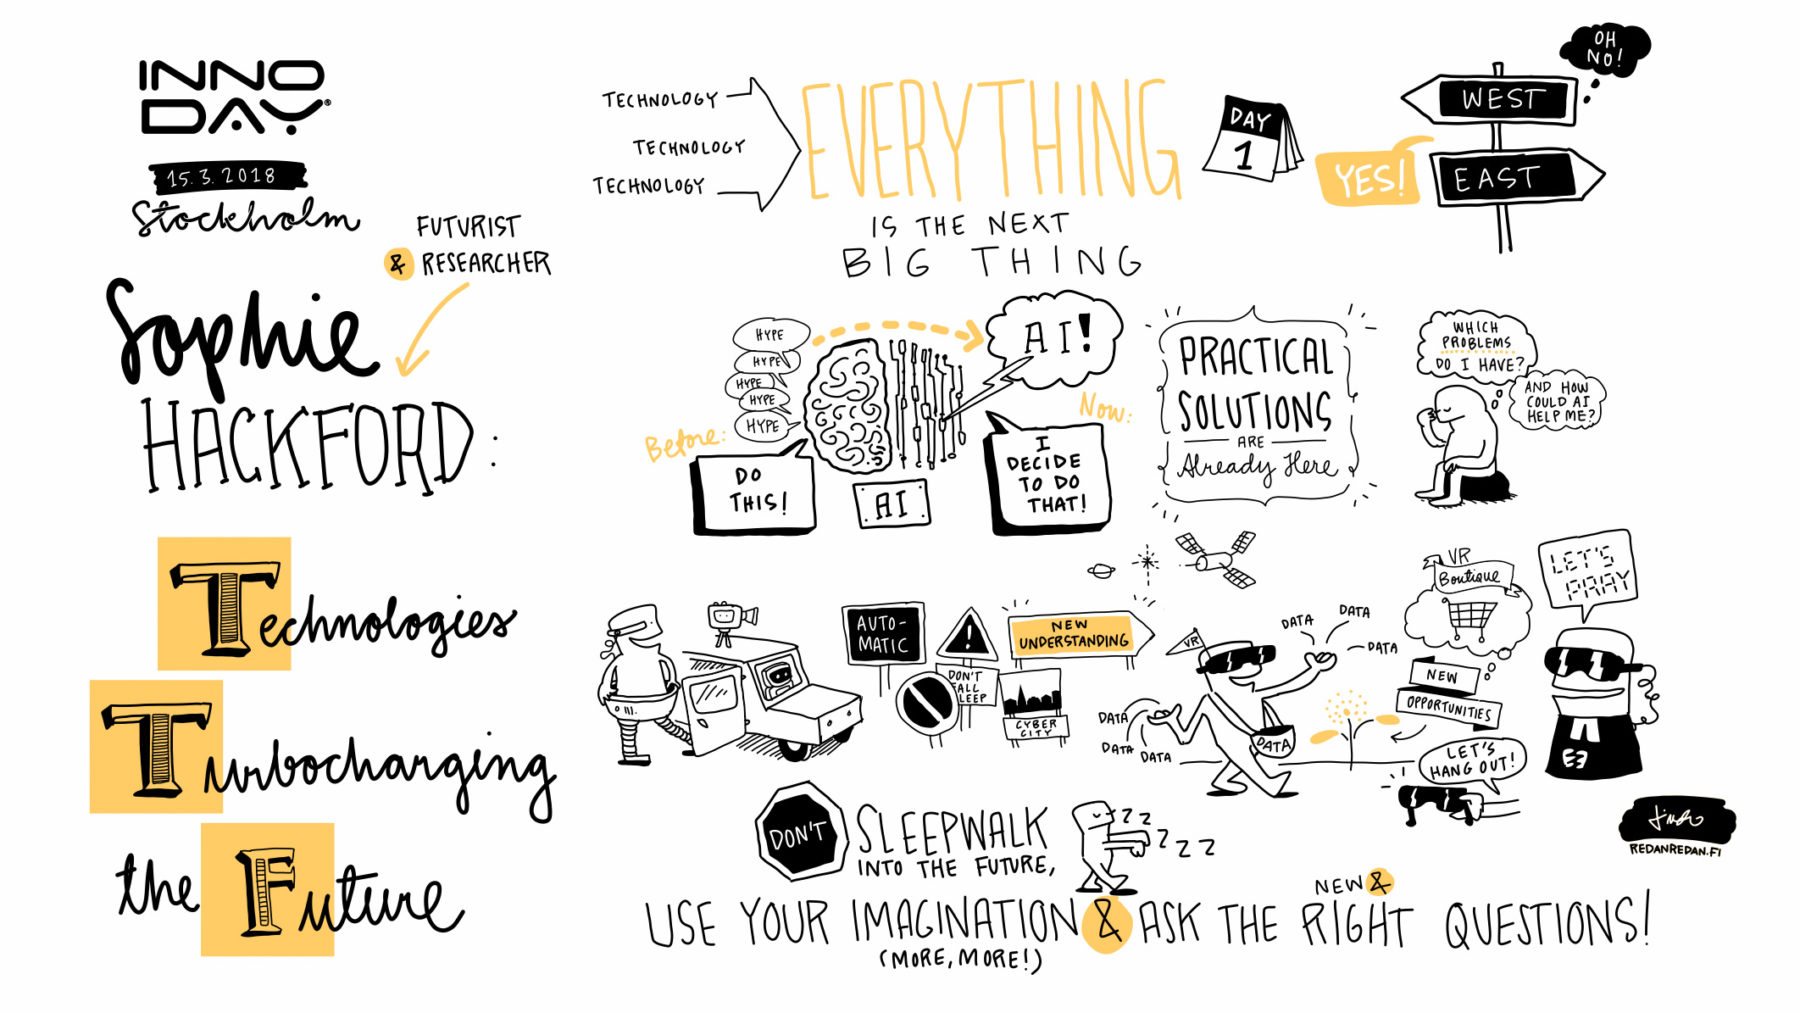 INNO
DAY®
15.3.2018
Stockholm
FUTURIST
& RESEARCHER
Sophie
HACKFORD:
Technologies
Turbocharging
the Future
TECHNOLOGY
TECHNOLOGY
TECHNOLOGY
EVERYTHING
IS THE NEXT
BIG THING
DAY
1
OH
NO!
WEST
YES!
EAST
HYPE
HYPE
HYPE
HYPE
HYPE
Before:
DO
THIS!
AI
AI!
Now:
I
DECIDE
TO DO
THAT!
PRACTICAL
SOLUTIONS
ARE
Already Here
WHICH
PROBLEMS
DO I HAVE?
AND HOW
COULD AI
HELP ME?
AUTO-
MATIC
!
DON'T
FALL
SLEEP
NEW
UNDERSTANDING
CYBER
CITY
VR
DATA
DATA
DATA
DATA
DATA
DATA
DATA
VR
Boutique
NEW
OPPORTUNITIES
LET'S
HANG OUT!
LET'S
PRAY
DON'T
SLEEPWALK
INTO THE FUTURE,
ZZZZZZ
USE YOUR IMAGINATION & ASK THE NEW & RIGHT QUESTIONS!
(MORE, MORE!)
REDANREDAN.FI